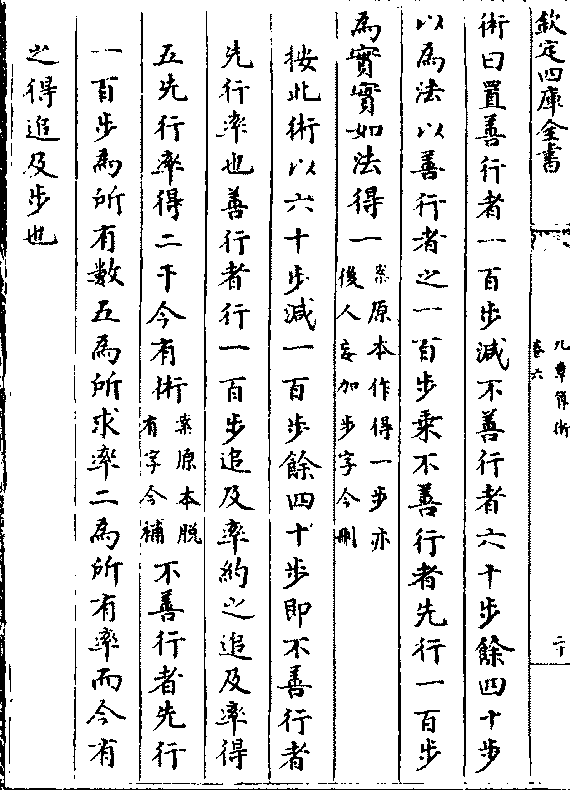 欽定四庫全書
九章算術
卷六
二十
術曰置善行者一百步減不善行者六十步餘四十步
以為法以善行者之一百步乘不善行者先行一百步
為實實如法得一案原本作得一步亦後人妄加步字今刪
按此術以六十步減一百步餘四十步即不善行者
先行率也善行者行一百步追及率約之追及率得
五先行率得二于今有術案原本脫有字今補不善行者先行
一百步為所有數五為所求率二為所有率而今有
之得追及步也